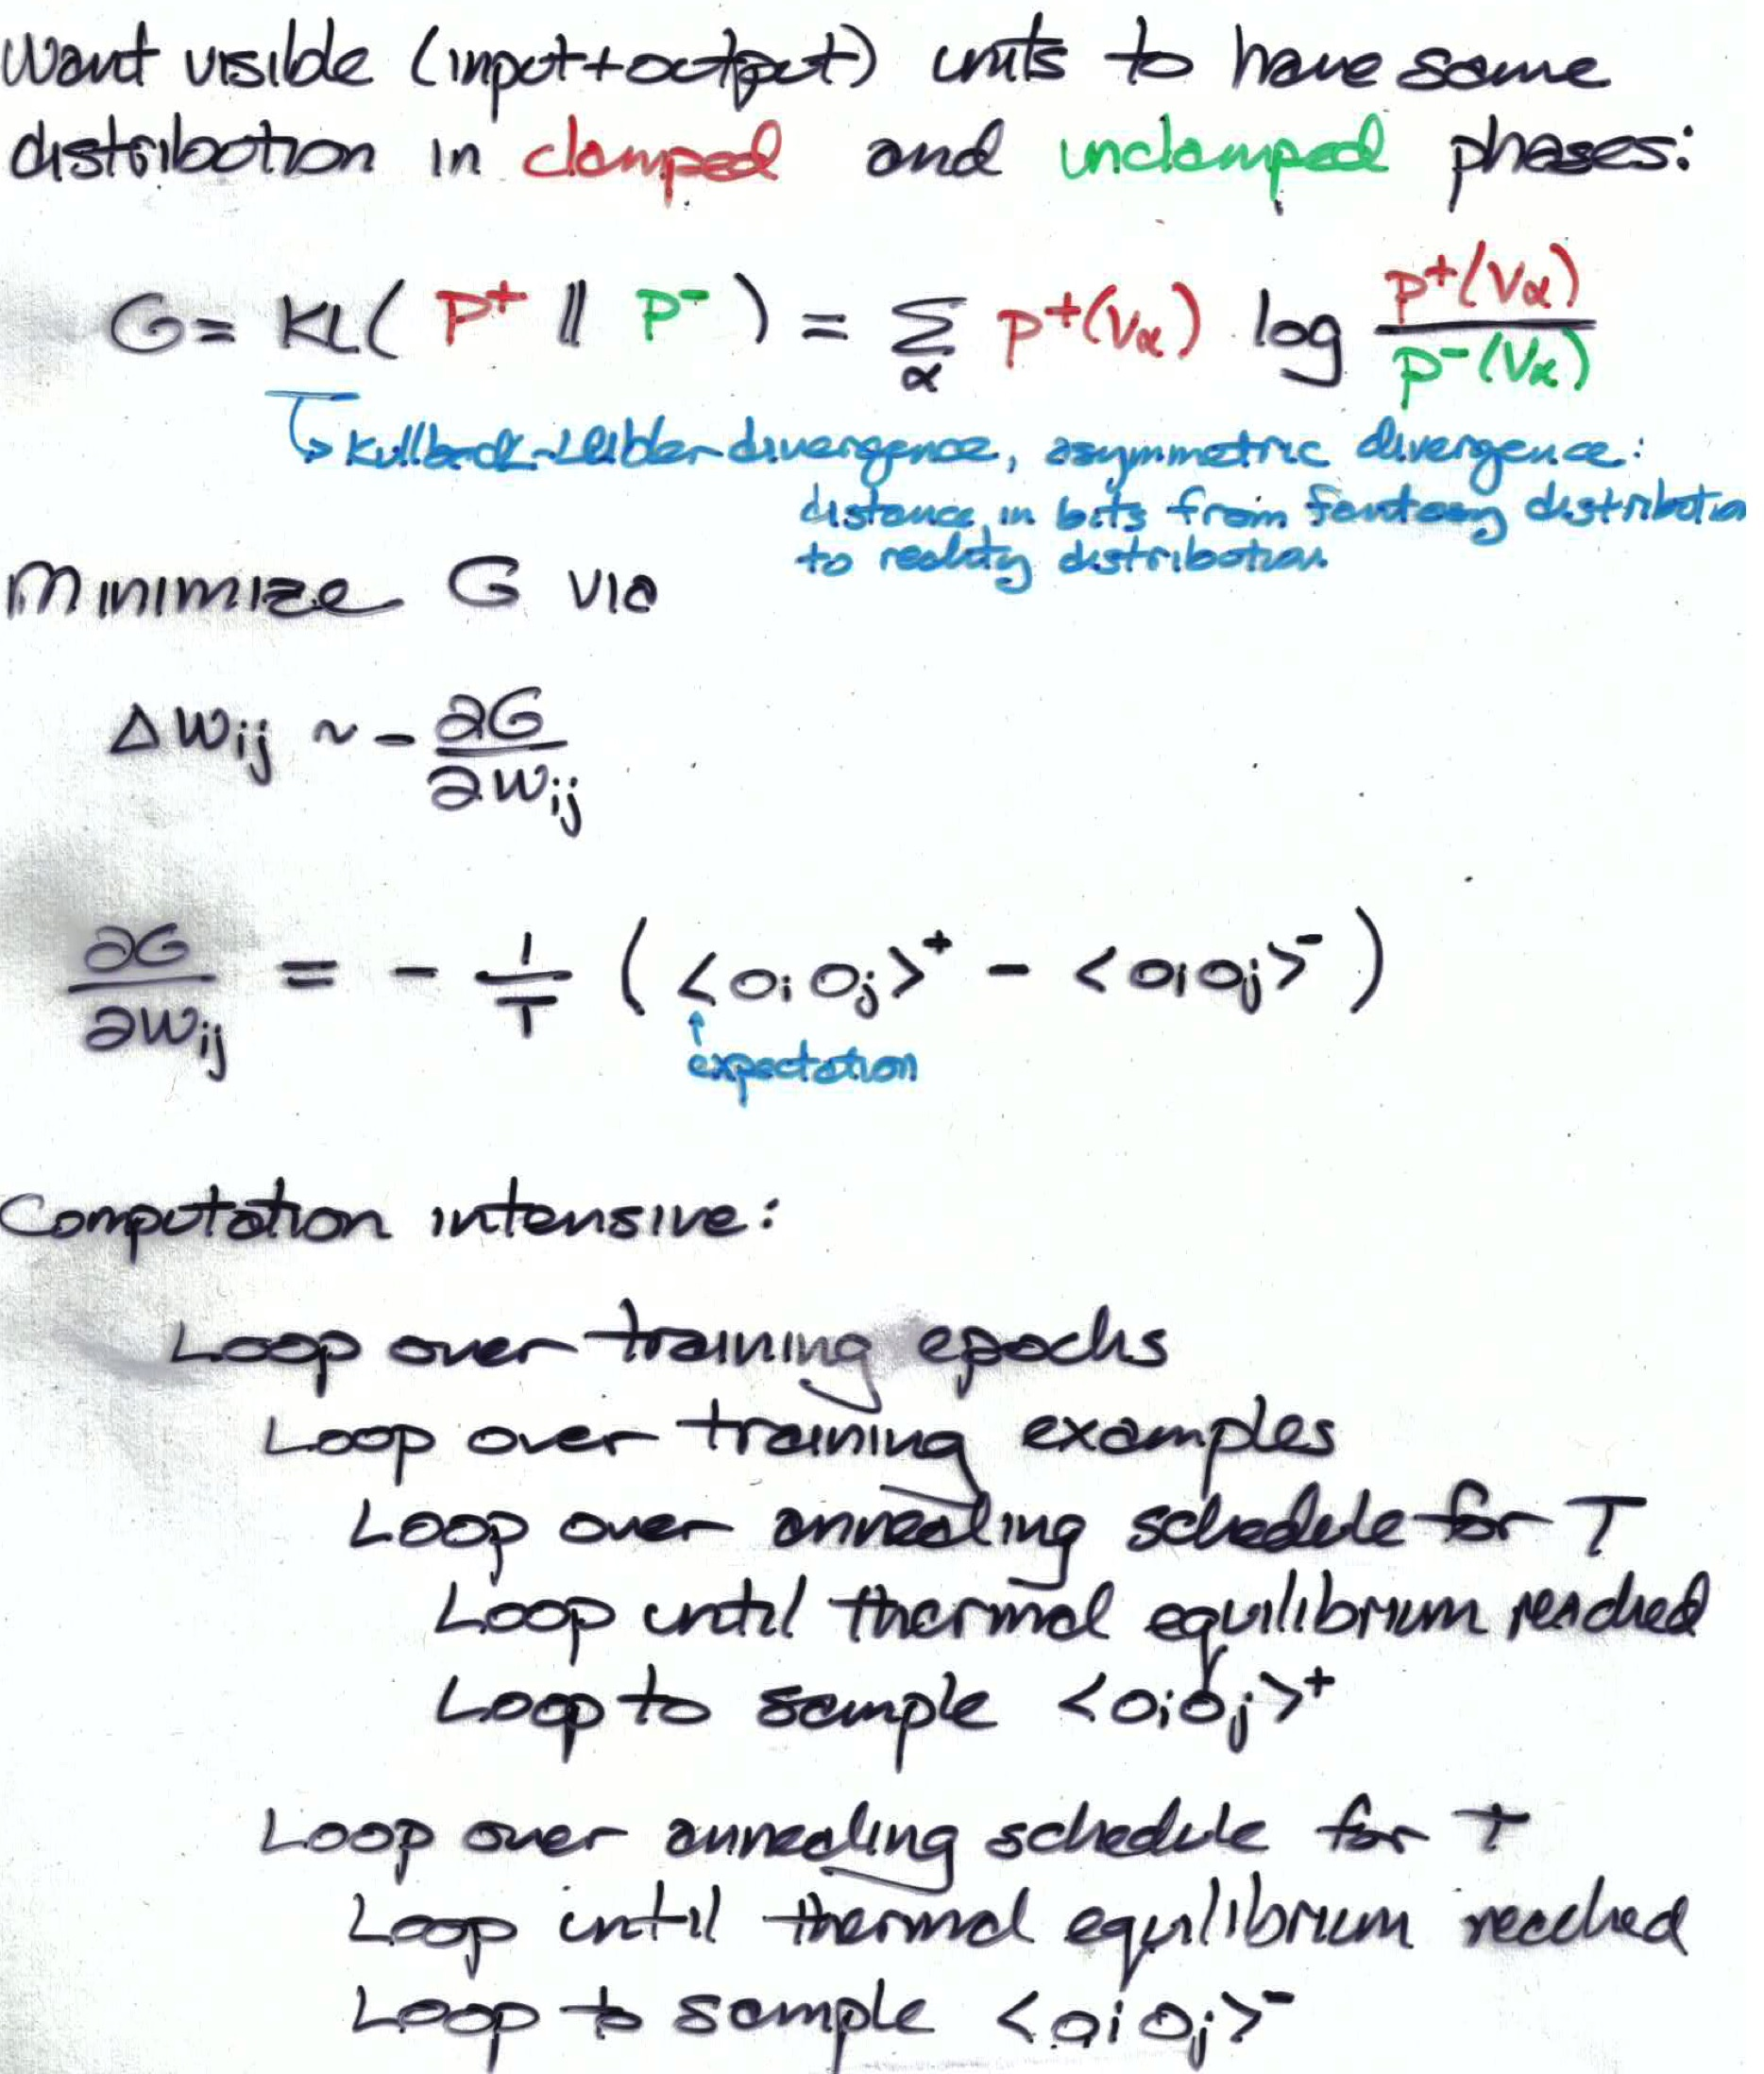 Want visible (input+output) units to have same
distribution in clamped and unclamped phases:
G = KL( P⁺ || P⁻ ) = ∑_α P⁺(V_α) log P⁺(V_α) / P⁻(V_α)
↳ Kullback-Leibler divergence, asymmetric divergence:
distance in bits from fantasy distribution
to reality distribution.
Minimize G via
Δ w_ij ~ - ∂G / ∂w_ij
∂G / ∂w_ij = - 1/T ( <o_i o_j>⁺ - <o_i o_j>⁻ )
↑
expectation
Computation intensive:
Loop over training epochs
Loop over training examples
Loop over annealing schedule for T
Loop until thermal equilibrium reached
Loop to sample <o_i o_j>⁺
Loop over annealing schedule for T
Loop until thermal equilibrium reached
Loop to sample <o_i o_j>⁻